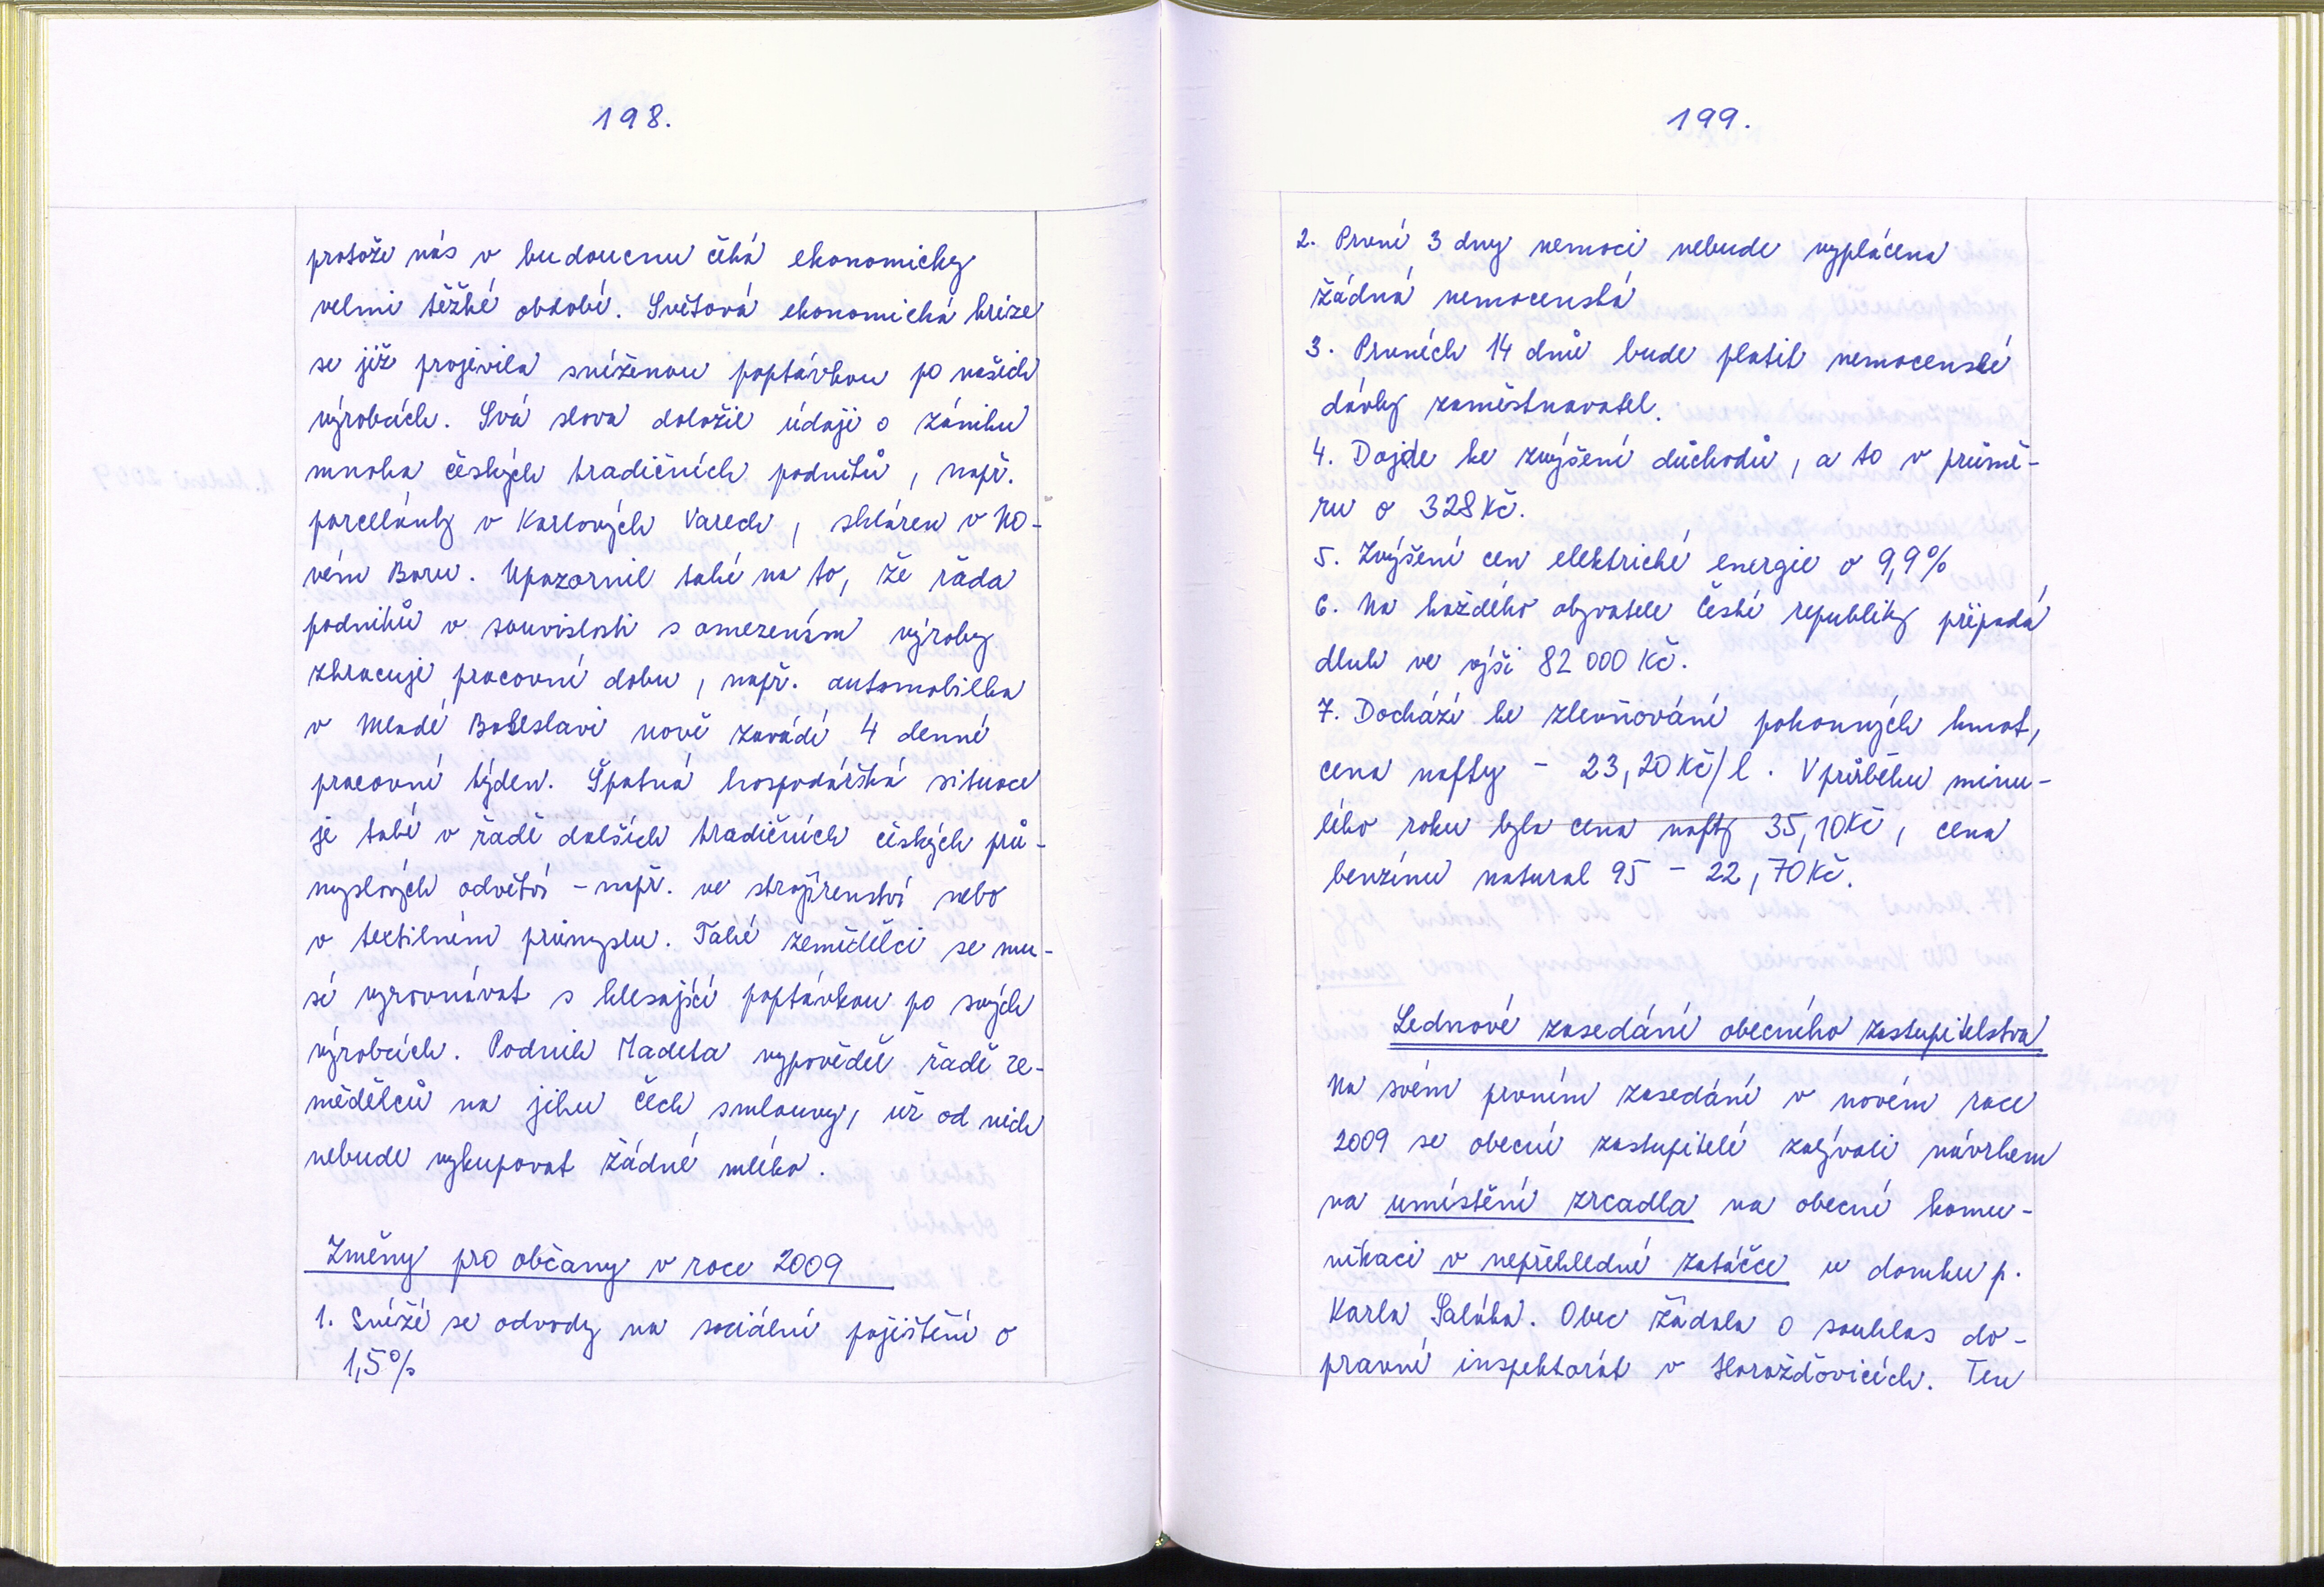 198.
protože nás v budoucnu čeká ekonomicky
velmi těžké období. Světová ekonomická krize
se již projevila sníženou poptávkou po našich
výrobcích. Svá slova doložil údaji o zániku
mnoha českých tradičních podniků, např.
porcelánky v Karlových Varech, skláren v No-
vém Boru. Upozornil také na to, že řada
podniků v souvislosti s omezením výroby
zkracuje pracovní dobu, např. automobilka
v Mladé Boleslavi nově zavádí 4 denní
pracovní týden. Špatná hospodářská situace
je také v řadě dalších tradičních českých prů-
myslových odvětví - např. ve strojírenství nebo
v textilním průmyslu. Také zemědělci se mu-
sí vyrovnávat s klesající poptávkou po svých
výrobcích. Podnik Madeta vypověděl řadě ze-
mědělců na jihu Čech smlouvy, už od nich
nebude vykupovat žádné mléko.
Změny pro občany v roce 2009
1. Sníží se odvody na sociální pojištění o
1,5%
199.
2. První 3 dny nemoci nebude vyplácena
žádná nemocenská
3. Prvních 14 dnů bude platit nemocenské
dávky zaměstnavatel.
4. Dojde ke zvýšení důchodů, a to v průmě-
ru o 328 Kč.
5. Zvýšení cen elektrické energie o 9,9%
6. Na každého obyvatele České republiky připadá
dluh ve výši 82 000 Kč.
7. Dochází ke zlevňování pohonných hmot,
cena nafty - 23,20 Kč/l. V průběhu minu-
lého roku byla cena nafty 35,10 Kč, cena
benzínu natural 95 - 22,70 Kč.
Lednové zasedání obecního zastupitelstva
Na svém prvním zasedání v novém roce
2009 se obecní zastupitelé zabývali návrhem
na umístění zrcadla na obecní komu-
nikaci v nepřehledné zatáčce u domku p.
Karla Saláka. Obec žádala o souhlas do-
pravní inspektorát v Horažďovicích. Ten